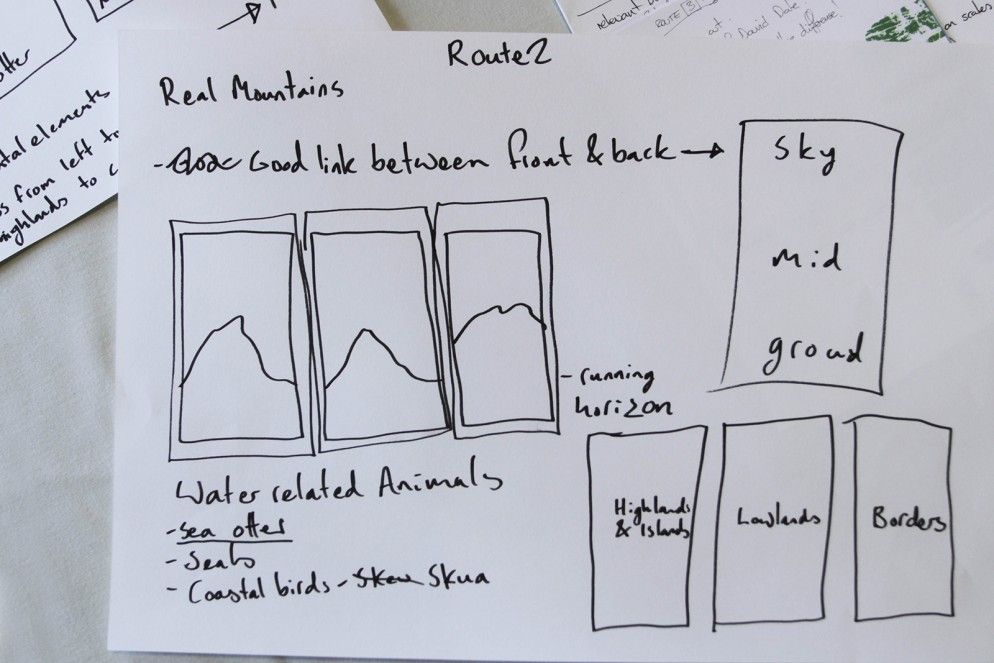 Route 2
Real Mountains
- Good link between front & back →
Sky
Mid
ground
- running
horizon
Water related Animals
- sea otter
- Seals
- Coastal birds - Skua
Highlands
& Islands
Lowlands
Borders
otter
elements
from left to
Highlands to
relevant
ROUTE 3
David Date
the difference!
on scales